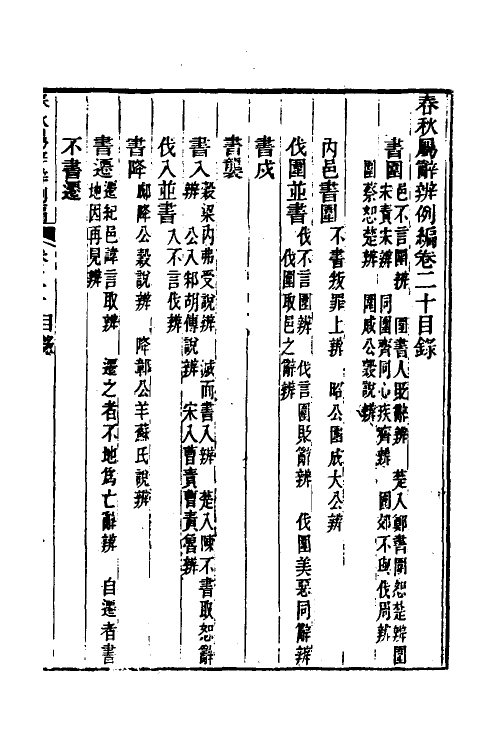 春秋屬辭辨例編卷二十目錄
書圍 邑不言圍辨 圍書人貶辭辨 楚入鄭書圍恕楚辨 圍
宋責宋辨 同圍齊同心疾齊辨 圍郊不與伐周辨
圍蔡恕楚辨 圍戚公羖說辨
內邑書圍 不書叛罪上辨 昭公圍成大公辨
伐圍並書 伐不言圍辨 伐言圍貶辭辨 伐圍美惡同辭辨
伐圍取邑之辭辨
書戍
書襲
書入 穀梁內弗受說辨 滅而書入辨 楚入陳不書取恕辭
辨 公入邾胡傳說辨 宋入曹責曹責魯辨
伐入並書 入不言伐辨
書降 鄣降公穀說辨 降鄣公羊蘇氏說辨
書遷 遷紀邑諱言取辨 遷之者不地為亡辭辨 自遷者書
地因再見辨
不書遷
目錄